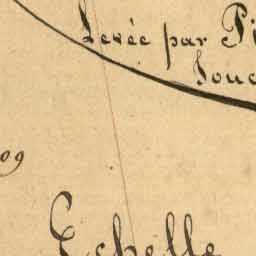 Levée par Pi
09
Echelle